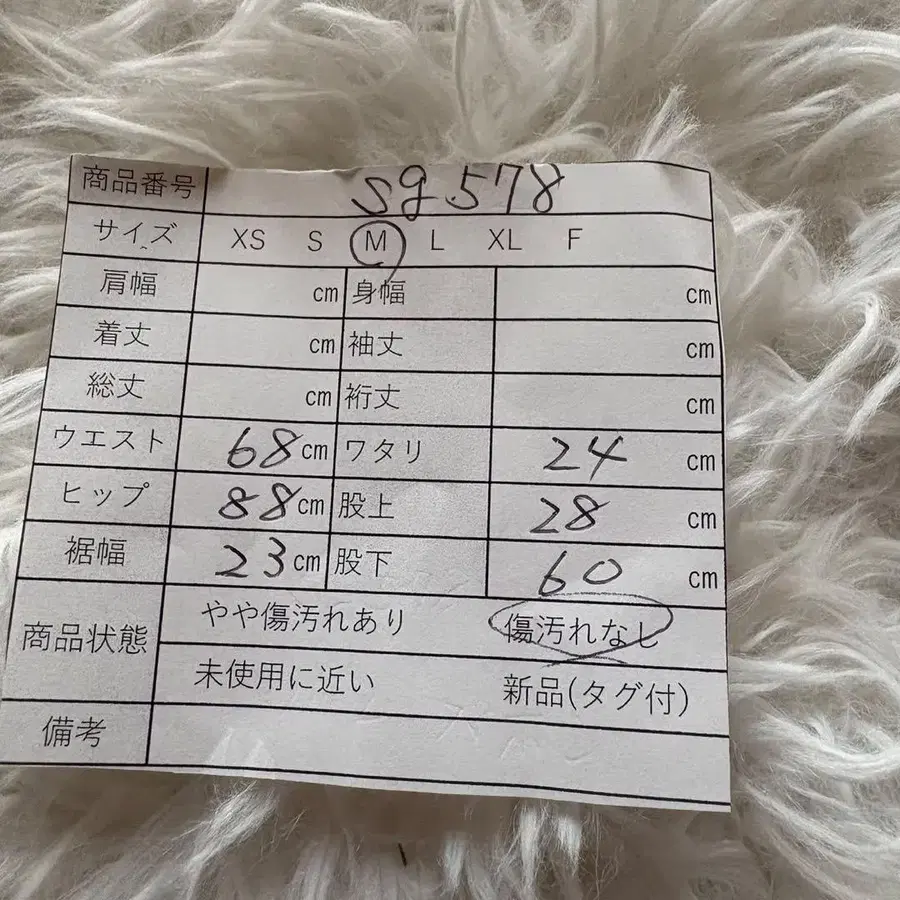 商品番号 sg.578
サイズ XS S M L XL F
肩幅 cm 身幅 cm
着丈 cm 袖丈 cm
総丈 cm 裄丈 cm
ウエスト 68cm ワタリ 24 cm
ヒップ 88cm 股上 28 cm
裾幅 23cm 股下 60 cm
商品状態 やや傷汚れあり 傷汚れなし
未使用に近い 新品(タグ付)
備考